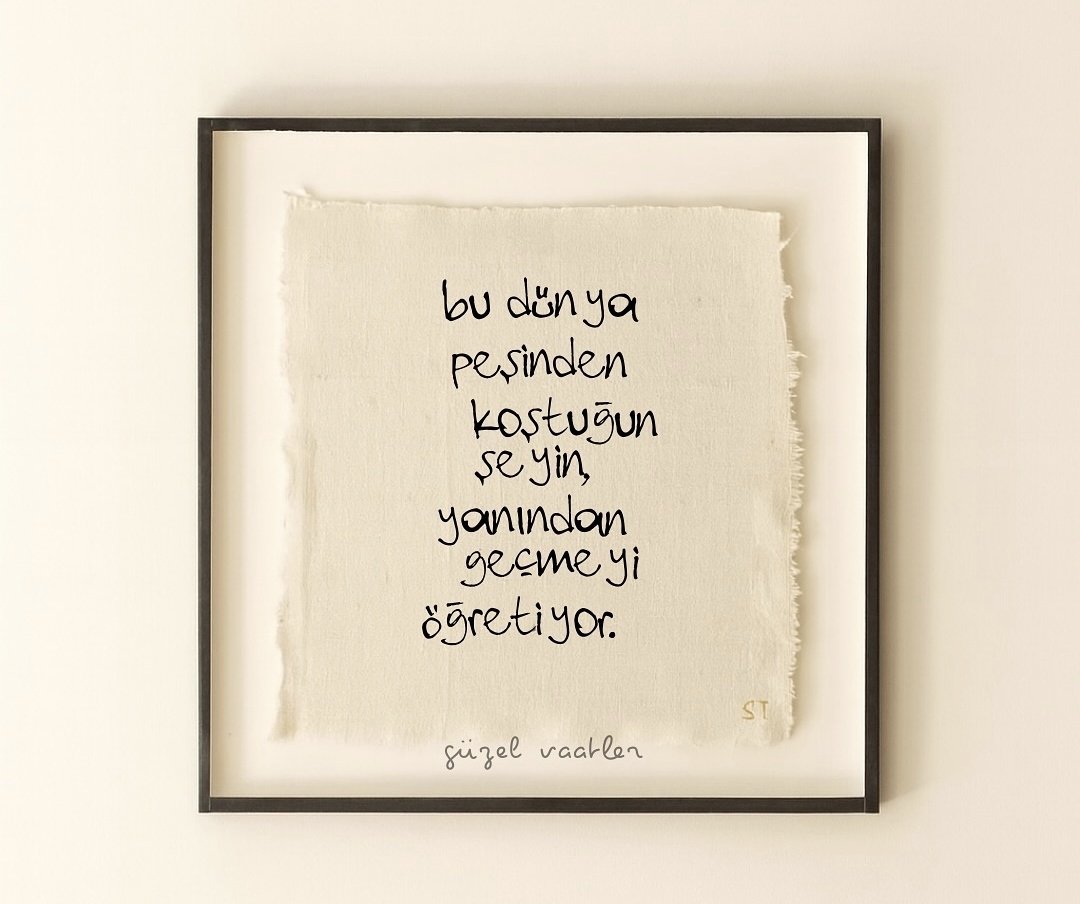 bu dünya
peşinden
koştuğun
şeyin,
yanından
geçmeyi
öğretiyor.
ST
güzel vaatler